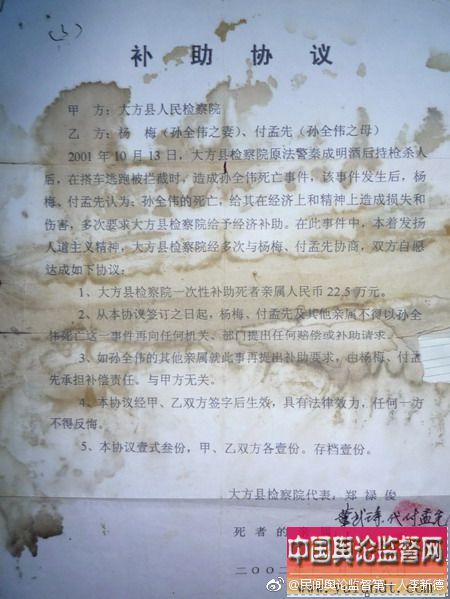 (3)
补助协议
甲 方：大方县人民检察院
乙 方：杨 梅（孙全伟之妻）、付孟先（孙全伟之母）
2001 年 10 月 13 日，大方县检察院原法警秦成明酒后持枪杀人
后，在搭车逃跑被拦截时，造成孙全伟死亡事件，该事件发生后，杨
梅、付孟先认为：孙全伟的死亡，给其在经济上和精神上造成损失和
伤害，多次要求大方县检察院给予经济补助。在此事件中，本着发扬
人道主义精神，大方县检察院经多次与杨梅、付孟先协商，双方自愿
达成如下协议：
1、大方县检察院一次性补助死者亲属人民币 22.5 万元。
2、从本协议签订之日起，杨梅、付孟先及其他亲属不得以孙全
伟死亡这一事件再向任何机关、部门提出任何赔偿或补助请求。
3、如孙全伟的其他亲属就此事再提出补助要求，由杨梅、付孟
先承担补偿责任。与甲方无关。
4、本协议经甲、乙双方签字后生效，具有法律效力，任何一方
不得反悔。
5、本协议壹式叁份，甲、乙双方各壹份。存档壹份。
大方县检察院代表：郑禄俊
代付孟先
死者的
二〇〇二
中国舆论监督网
@民间舆论监督第一人李新德